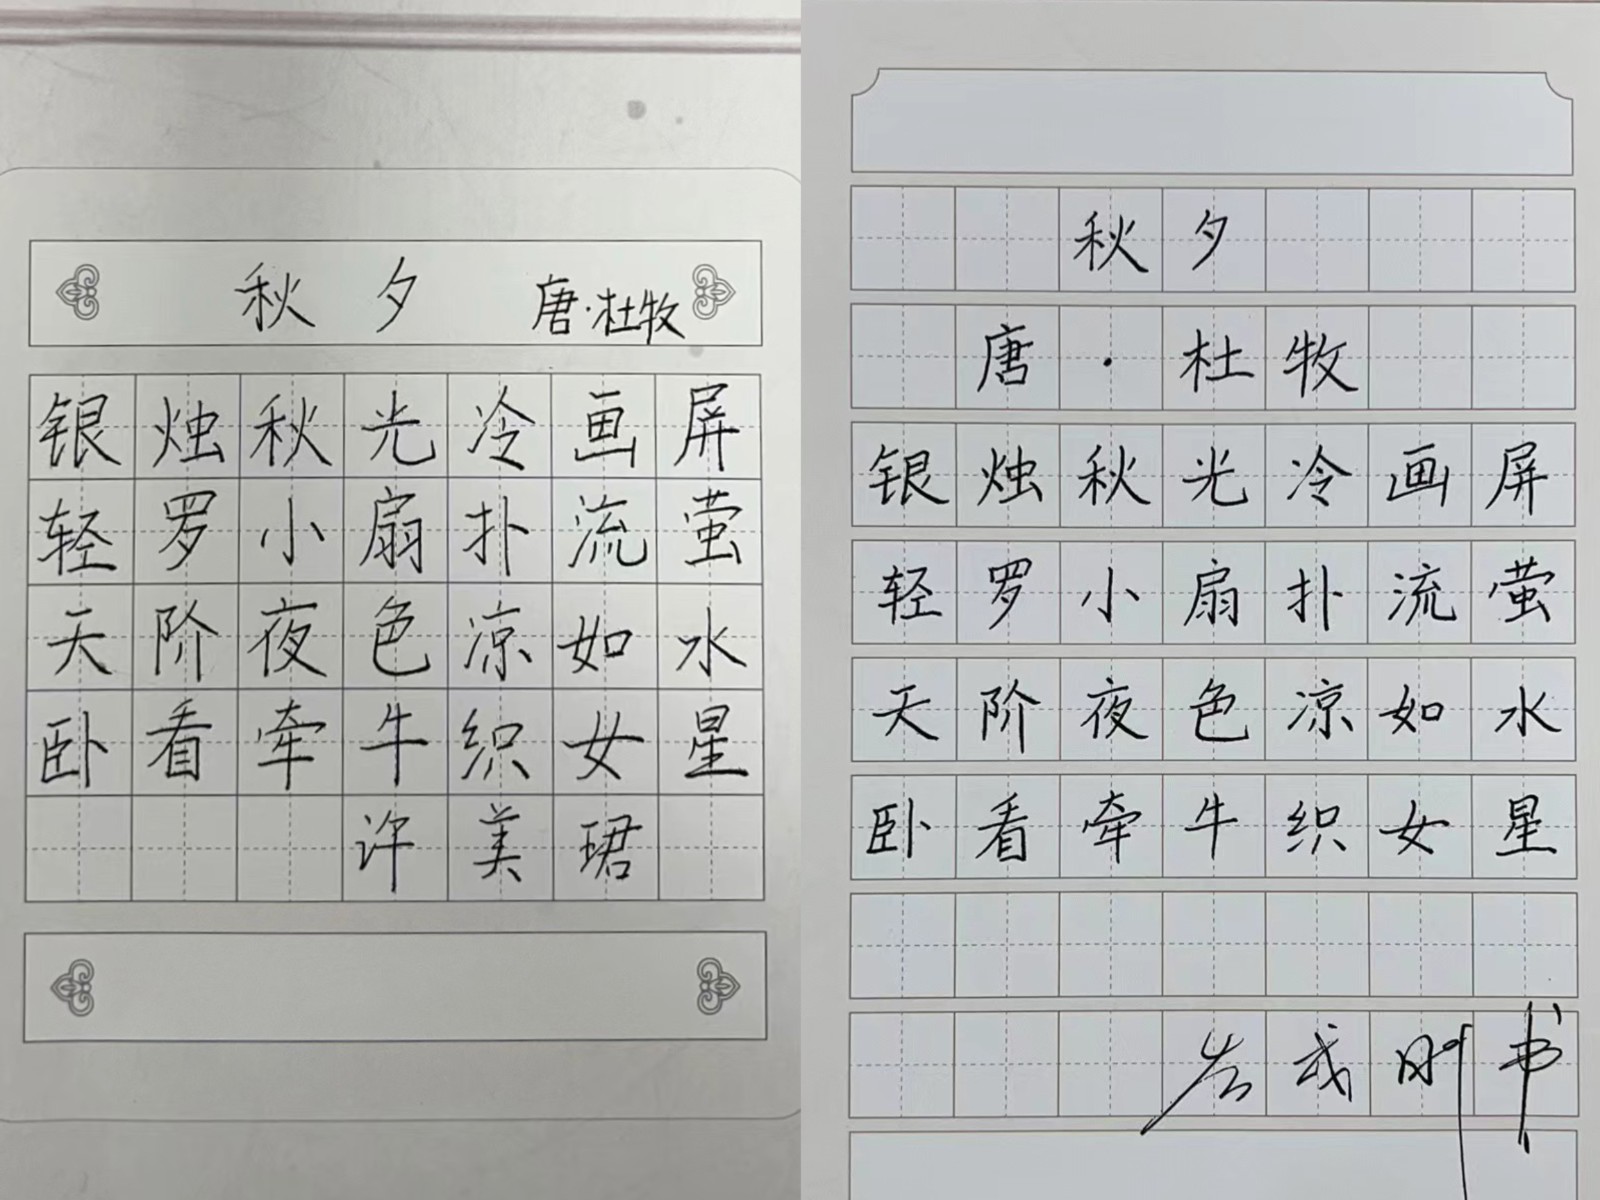 秋夕 唐·杜牧
银烛秋光冷画屏
轻罗小扇扑流萤
天阶夜色凉如水
卧看牵牛织女星
许美珺
秋夕
唐·杜牧
银烛秋光冷画屏
轻罗小扇扑流萤
天阶夜色凉如水
卧看牵牛织女星
成刚书